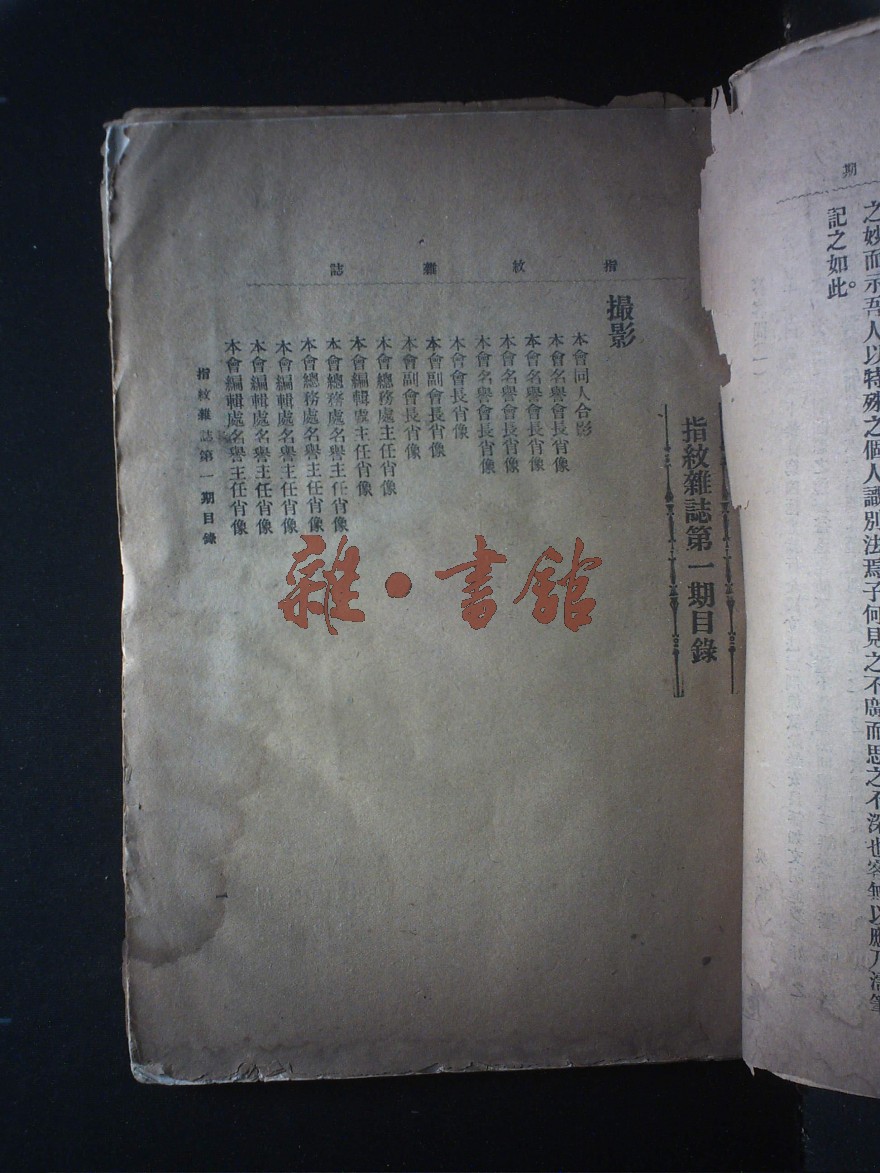 期
之妙而示吾人以特殊之個人識別法焉子何見之不廣而思之不深也客無以應乃濡筆
記之如此。
指紋雜誌
指紋雜誌第一期目錄
撮影
本會同人合影
本會名譽會長肖像
本會名譽會長肖像
本會名譽會長肖像
本會名譽會長肖像
本會會長肖像
本會副會長肖像
本會副會長肖像
本會總務處主任肖像
本會編輯處主任肖像
本會總務處名譽主任肖像
本會總務處名譽主任肖像
本會編輯處名譽主任肖像
本會編輯處名譽主任肖像
本會編輯處名譽主任肖像
指紋雜誌第一期目錄
一
雜·書館